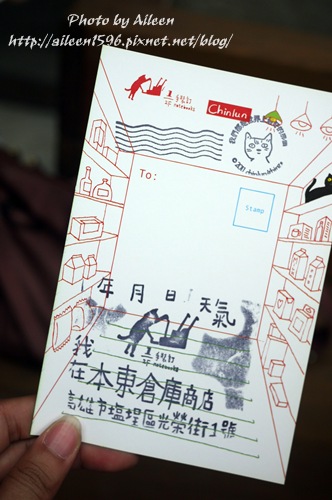 Photo by Aileen
http://aileen1596.pixnet.net/blog/
notebooks
Chinlun
To:
Stamp
年 月 日 天氣
notebooks
我
在本東倉庫商店
高雄市塩埕區光榮街1號